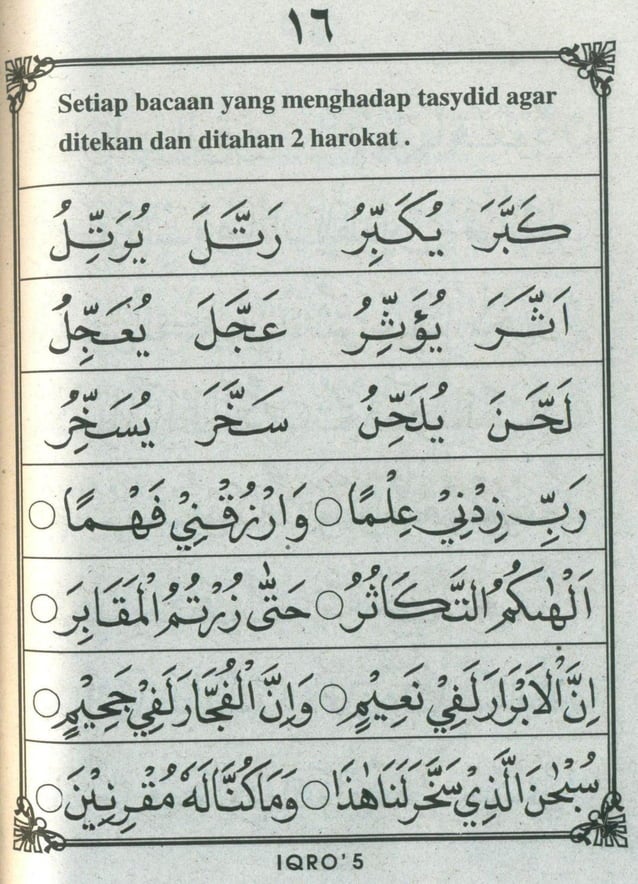 ١٦
Setiap bacaan yang menghadap tasydid agar
ditekan dan ditahan 2 harokat .
كَبَّرَ يُكَبِّرُ رَتَّلَ يُرَتِّلُ
اَثَّرَ يُؤَثِّرُ عَجَّلَ يُعَجِّلُ
لَحَّنَ يُلَحِّنُ سَخَّرَ يُسَخِّرُ
رَبِّ زِدْنِيْ عِلْمًا ○ وَارْزُقْنِيْ فَهْمًا ○
اَلْهٰىكُمُ التَّكَاثُرُ ○ حَتّٰى زُرْتُمُ الْمَقَابِرَ ○
اِنَّ الْاَبْرَارَ لَفِيْ نَعِيْمٍ ○ وَاِنَّ الْفُجَّارَ لَفِيْ جَحِيْمٍ ○
سُبْحٰنَ الَّذِيْ سَخَّرَ لَنَا هٰذَا ○ وَمَا كُنَّا لَهٗ مُقْرِنِيْنَ ○
IQRO' 5